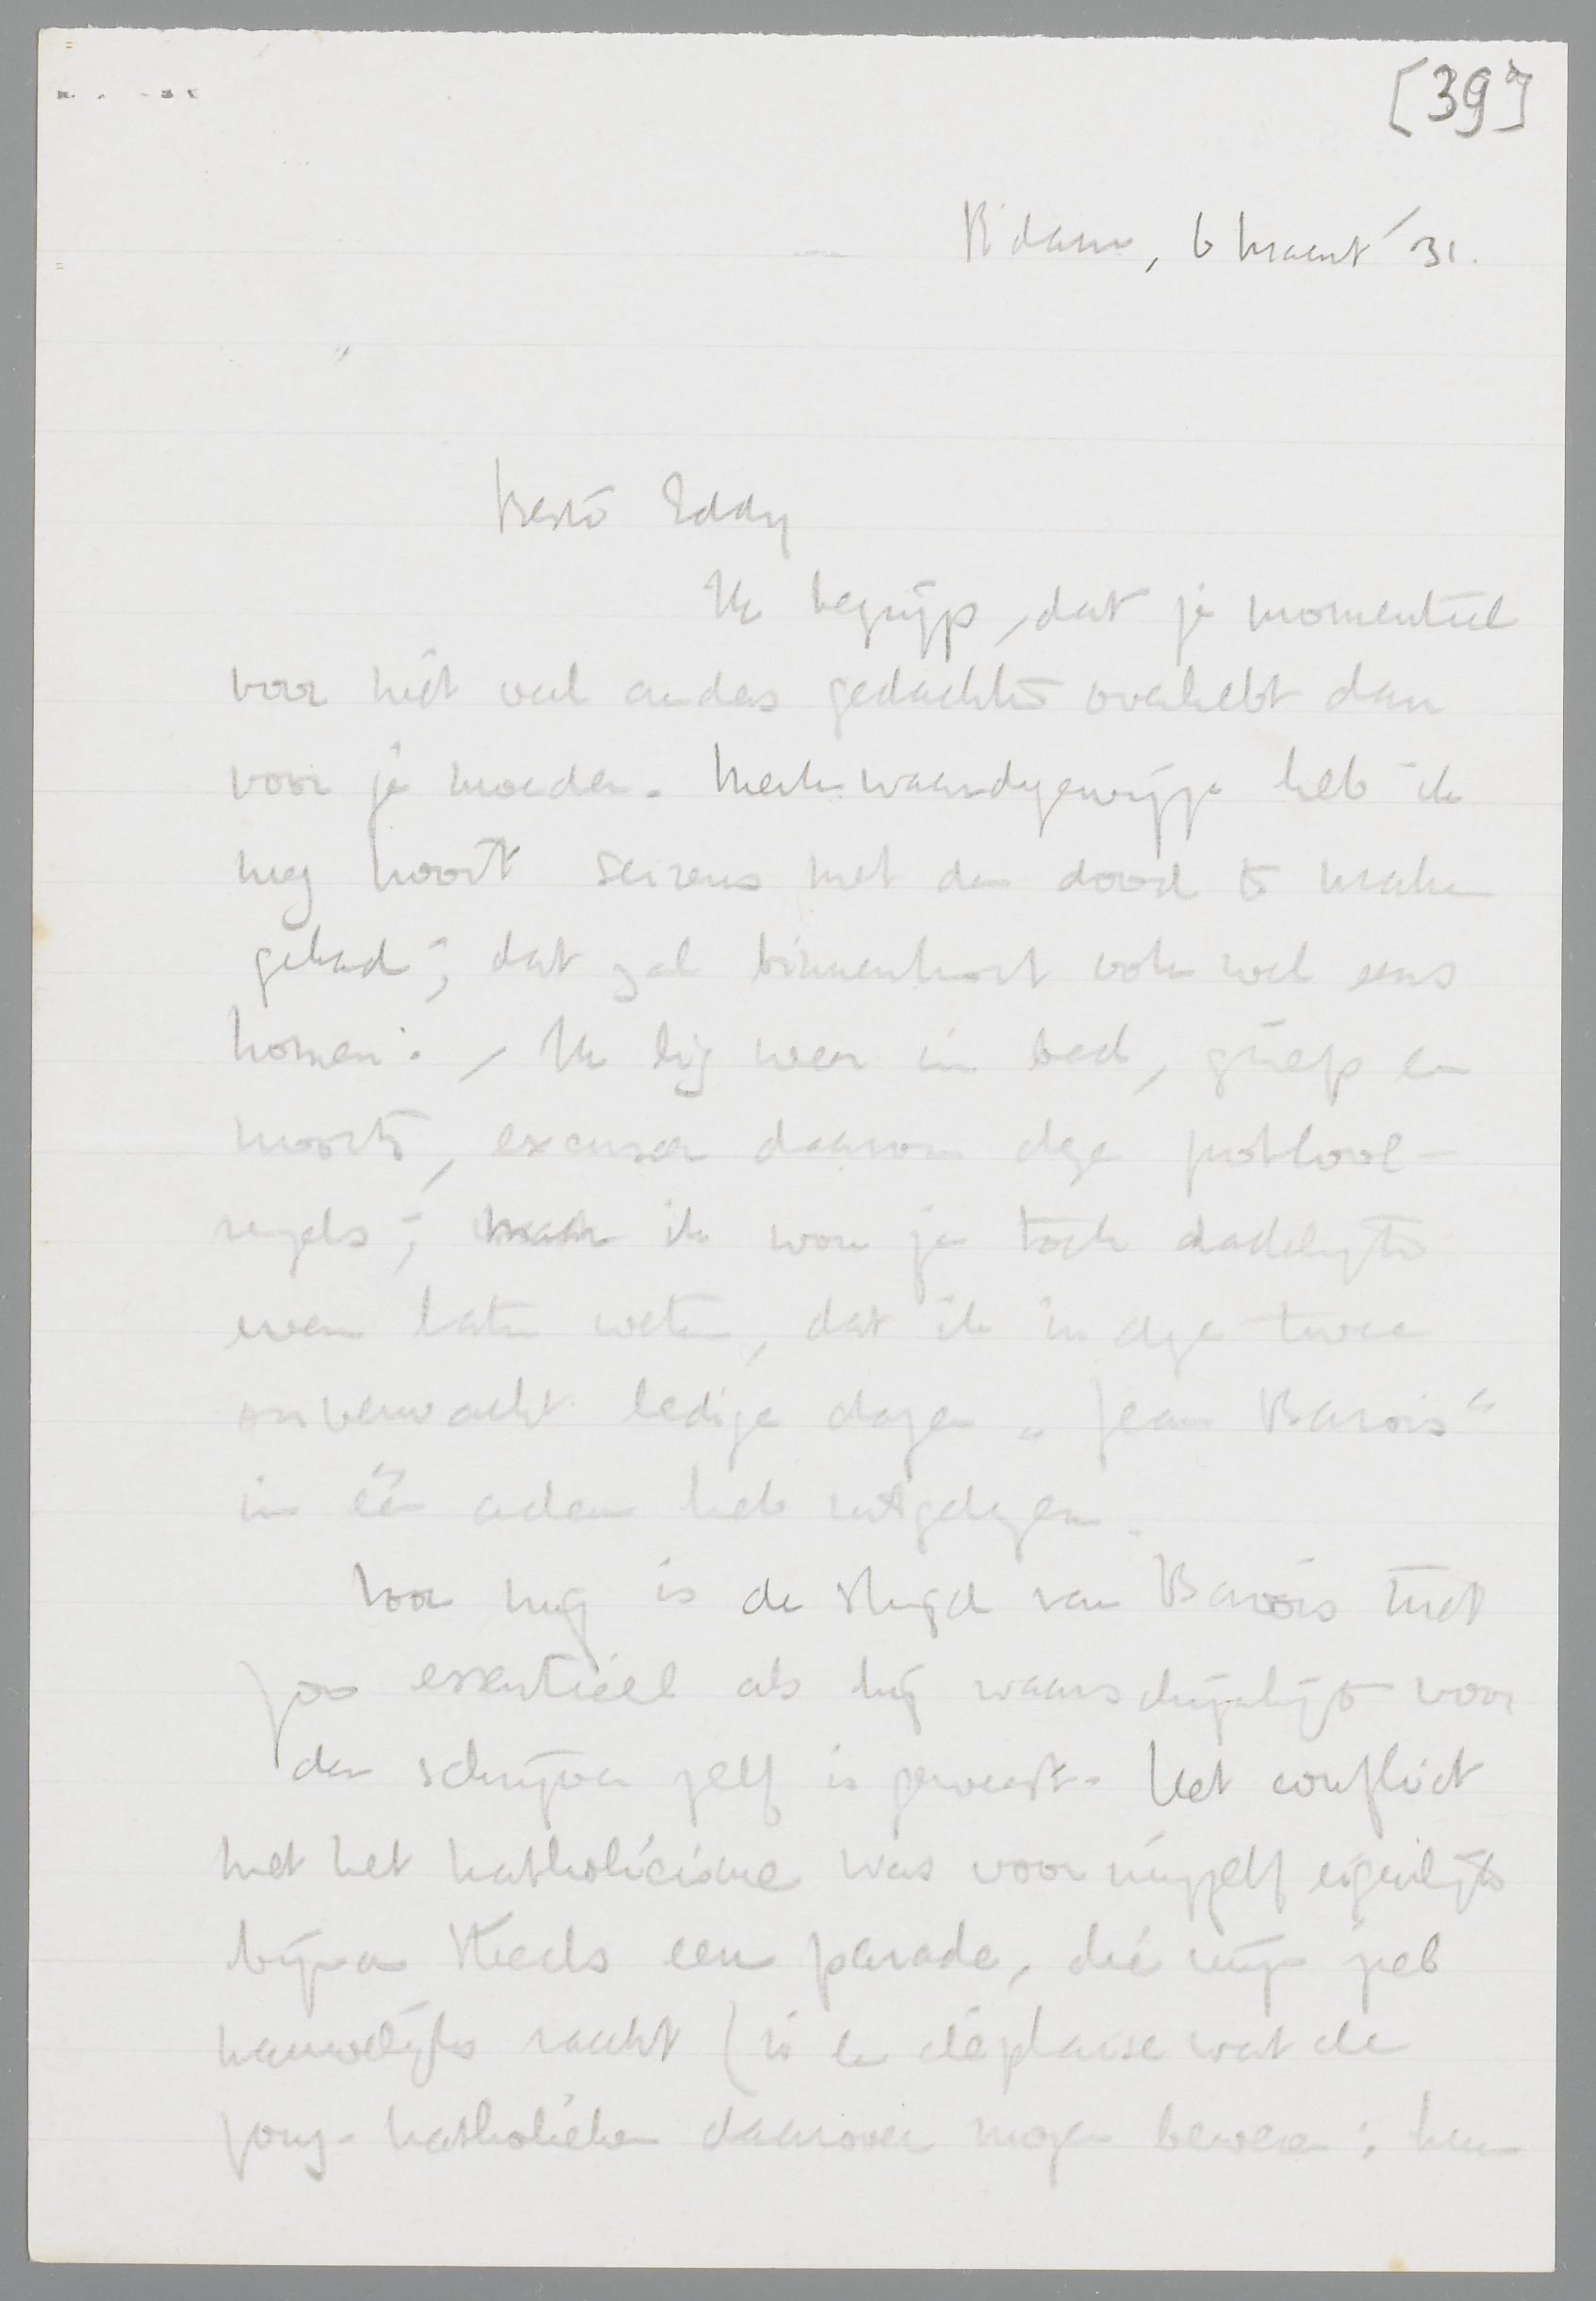 [39]
R'dam, 6 Maart '31.
Beste Eddy
Ik begrijp, dat je momenteel
voor niet veel anders gedachten overhebt dan
voor je moeder. Merkwaardigerwijze heb ik
nog nooit serieus met den dood te maken
gehad; dat zal binnenkort ook wel eens
komen. Ik lig weer in bed, griep en
koorts, excuseer daarom deze potlood-
regels; maar ik wou je toch dadelijk
even laten weten, dat ik in deze twee
onverwacht ledige dagen „Jean Barois"
in één adem heb uitgelezen.
Voor mij is de strijd van Barois niet
zoo essentieel als hij waarschijnlijk voor
den schrijver zelf is geweest. Het conflict
met het katholicisme was voor mijzelf eigenlijk
bijna steeds een parade, die mijn zelf
nauwelijks raakt (n'en déplaise wat de
jong-katholieken daarover mogen beweren: hun